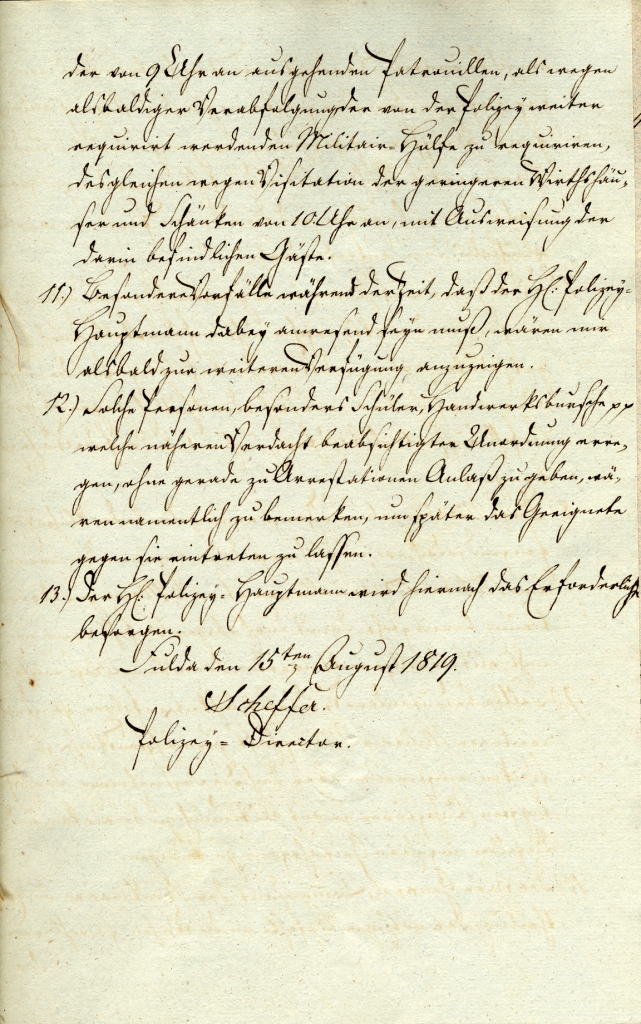 der von 9 Uhr an ausgehenden Patrouillen, als wegen
alsbaldiger Verabfolgung der von der Polizey weiter
requirirt werdenden Militair-Hülfe zu requiriren,
desgleichen wegen Visitation der geringeren Wirthshäu-
ser und Schänken von 10 Uhr an, mit Ausweisung der
darin befindlichen Gäste.
11.) Besondere Vorfälle während der Zeit, daß der H: Polizey-
Hauptmann dabey anwesend seyn muß, wären mir
alsbald zur weiteren Verfügung anzuzeigen.
12.) Solche Personen, besonders Schüler, Handwerksbursche pp
welche näheren Verdacht beabsichtigter Unordnung erre-
gen, ohne gerade zu Arrestationen Anlaß zu geben, wä-
ren namentlich zu bemerken, um später das Geeignete
gegen sie eintreten zu lassen.
13.) Der H: Polizey-Hauptmann wird hiernach das Erforderliche
besorgen.
Fulda den 15ten August 1819.
Scheffer.
Polizey-Director.